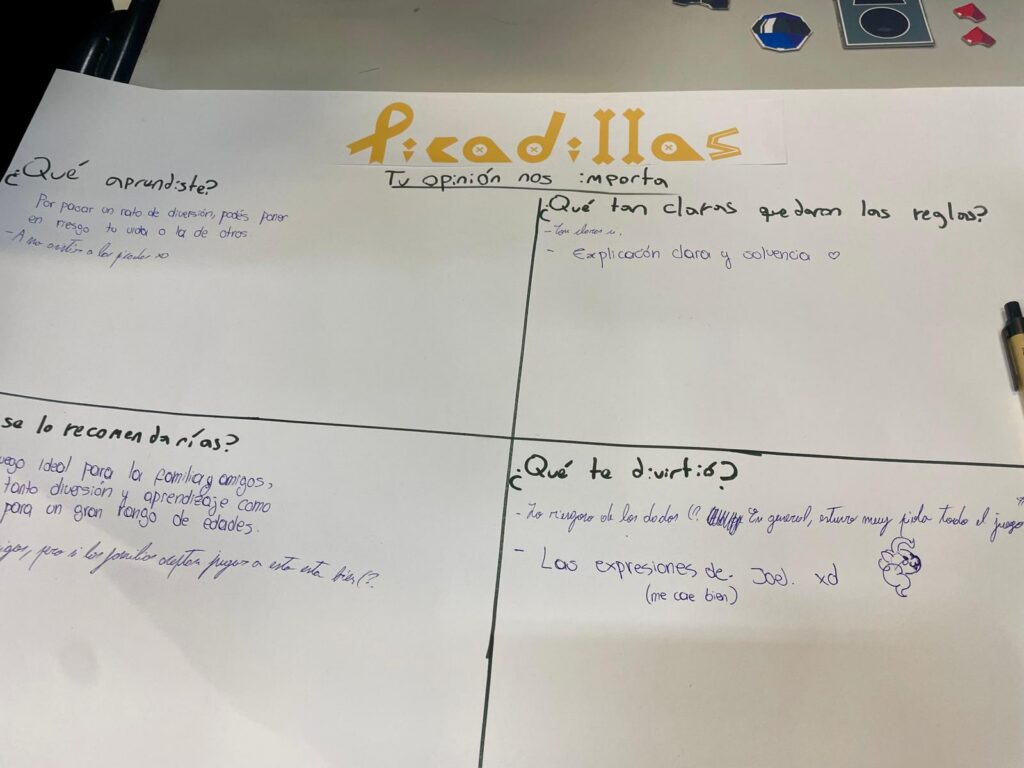 Picadillas
Tu opinión nos importa
¿Qué aprendiste?
Por pasar un rato de diversión, podés poner
en riesgo tu vida o la de otros
- A no
¿Qué tan claras quedaron las reglas?
- Explicación clara y solvencia ♡
se lo recomendarías?
uego ideal para la familia y amigos,
tanto diversión y aprendizaje como
para un gran rango de edades.
igos, pero si las familias aceptan jugar a esto esta bien (?
¿Qué te divirtió?
- Lo riesgoso de los dados (? En general, estuvo muy piola todo el juego
- Las expresiones de Joel. xd
(me cae bien)